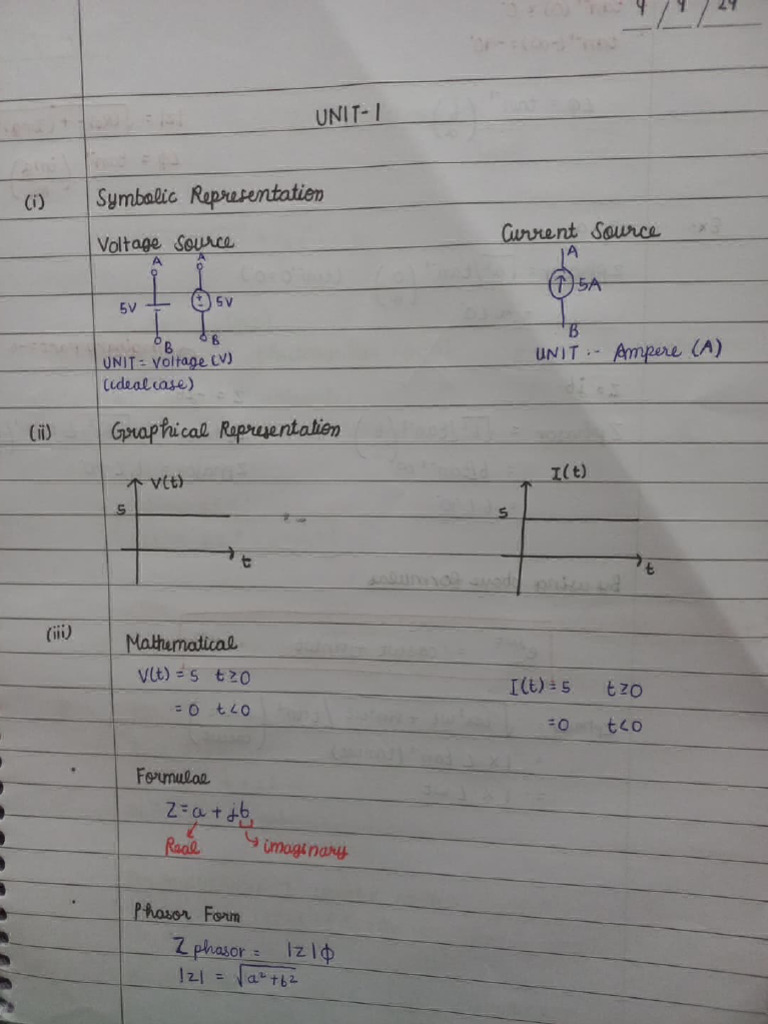 9/9/24
UNIT-1
(i) Symbolic Representation
Voltage Source Current Source
A A A
5V 5V 5A
B B B
UNIT = Voltage (V) UNIT :- Ampere (A)
(ideal case)
(ii) Graphical Representation
V(t) I(t)
5 5
t t
(iii) Mathematical
V(t) = 5 t≥0 I(t) = 5 t≥0
= 0 t<0 =0 t<0
Formulae
Z = a + jb
Real imaginary
Phasor Form
Z phasor = |z|ϕ
|z| = √a²+b²